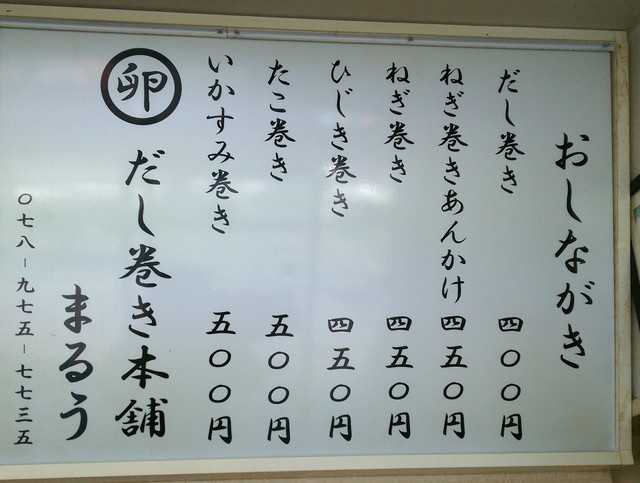 おしながき
だし巻き 四〇〇円
ねぎ巻きあんかけ 四五〇円
ねぎ巻き 四五〇円
ひじき巻き 四五〇円
たこ巻き 五〇〇円
いかすみ巻き 五〇〇円
卵 だし巻き本舗
まるう
〇七八－九七五－七七三五